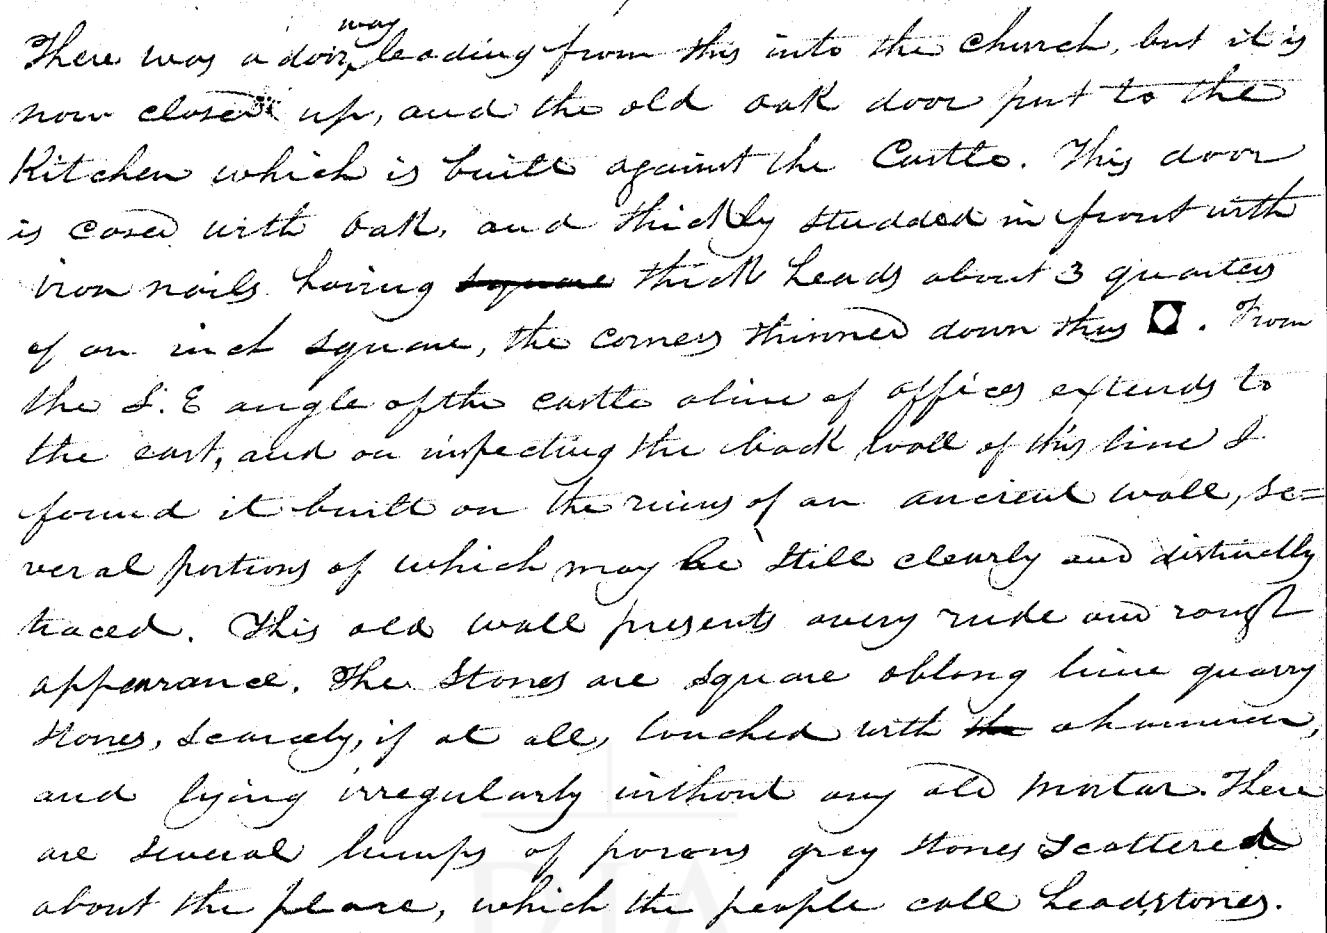 There was a doorway leading from this into the church, but it is
now closed up, and the old oak door put to the
Kitchen which is built against the Castle. This door
is cased with oak, and thickly studded in front with
iron nails having square thick heads about 3 quarters
of an inch square, the corners thinned down thus . From
the S. E angle of the castle a line of offices extends to
the east, and on inspecting the back wall of this line I
found it built on the ruins of an ancient wall, se=
veral portions of which may be still clearly and distinctly
traced. This old wall presents a very rude and rough
appearance. The Stones are square oblong lime quarry
stones, scarcely, if at all, touched with the a hammer,
and lying irregularly without any old mortar. There
are several lumps of porous grey stones scattered
about the place, which the people call headstones.